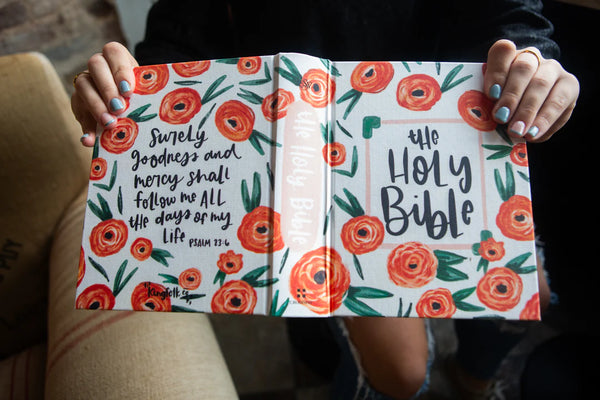 Surely
goodness and
mercy shall
follow me ALL
the days of my
life PSALM 23:6
the Holy Bible
the
Holy
Bible